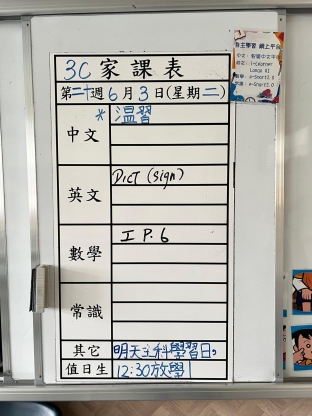 3C 家課表
第二十週 6月3日(星期二)
中文 *溫習
英文 Dict (sign)
數學 I P.6
常識
其它 明天主科學習日。
值日生 12:30放學
自主學習 網上平台
e-Smart